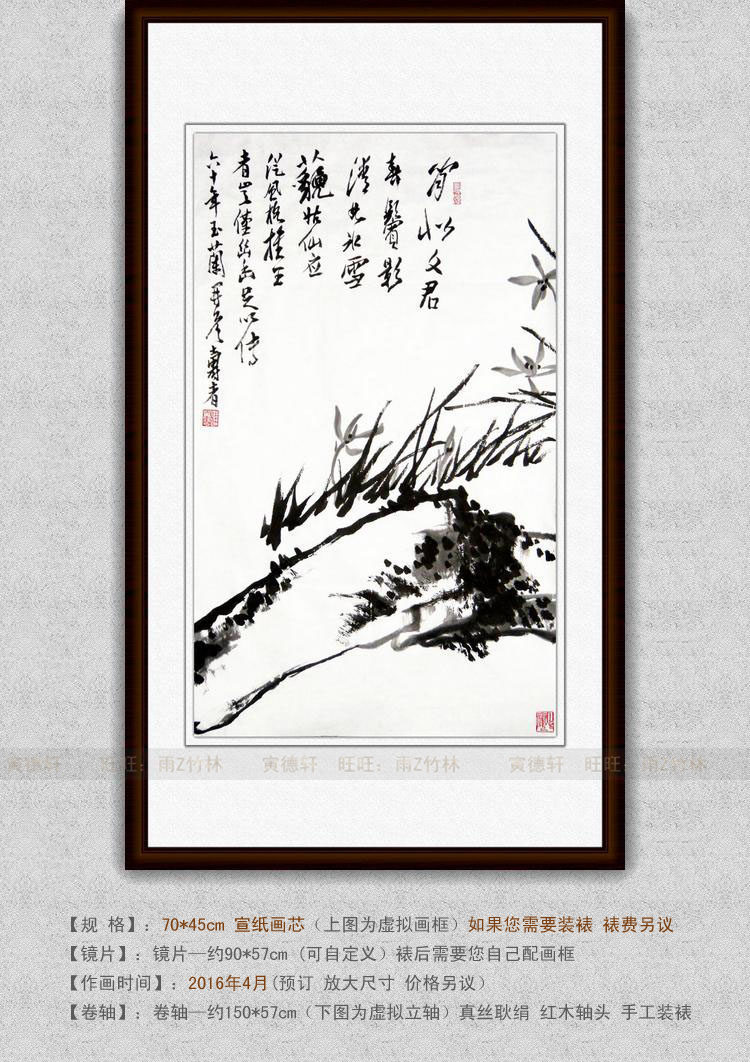 似文君
春鬢影
清如冰雪
藐姑仙应
從風格推王
者豈僅幽香足以傳
六十年玉蘭開 壽者
寅德轩 旺旺：雨Z竹林 寅德轩 旺旺：雨Z竹林 寅德轩 旺旺：雨Z竹林
【规 格】：70*45cm 宣纸画芯（上图为虚拟画框）如果您需要装裱 裱费另议
【镜片】：镜片—约90*57cm (可自定义）裱后需要您自己配画框
【作画时间】：2016年4月(预订 放大尺寸 价格另议）
【卷轴】：卷轴—约150*57cm（下图为虚拟立轴）真丝耿绢 红木轴头 手工装裱